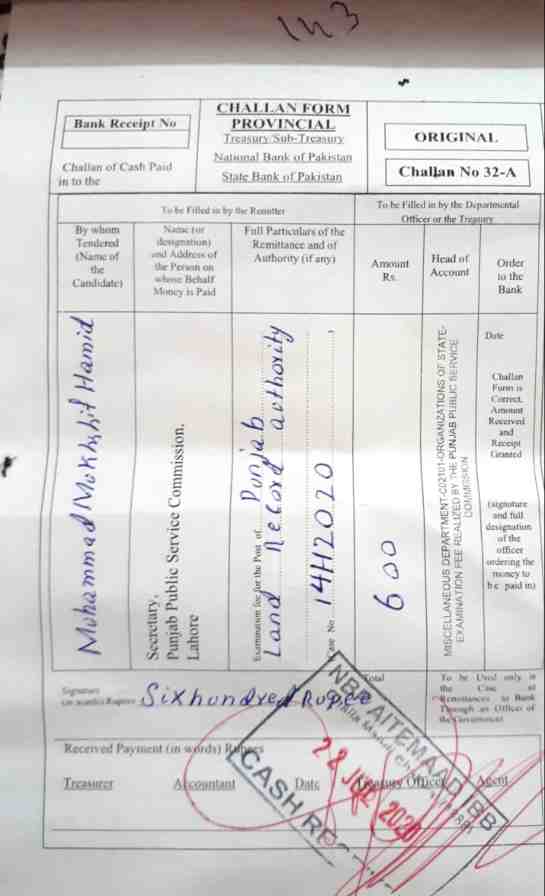 1n3
Bank Receipt No
Challan of Cash Paid
in to the
CHALLAN FORM
PROVINCIAL
Treasury/Sub-Treasury
National Bank of Pakistan
State Bank of Pakistan
ORIGINAL
Challan No 32-A
To be Filled in by the Remitter
To be Filled in by the Departmental
Officer or the Treasury
By whom
Tendered
(Name of
the
Candidate)
Name (or
designation)
and Address of
the Person on
whose Behalf
Money is Paid
Full Particulars of the
Remittance and of
Authority (if any)
Amount
Rs.
Head of
Account
Order
to the
Bank
Mohammad Mokhshif Hamid
Secretary,
Punjab Public Service Commission,
Lahore
Examination fee for the Post of Punjab
Land Record authority
Case No. 14H2020
600
MISCELLANEOUS DEPARTMENT-C02101-ORGANIZATIONS OF STATE-
EXAMINATION FEE REALIZED BY THE PUNJAB PUBLIC SERVICE
COMMISSION
Date
Challan
Form is
Correct,
Amount
Received
and
Receipt
Granted
(signature
and full
designation
of the
officer
ordering the
money to
be paid in)
Signature
(in words) Rupees Six hundred Rupee
Total
To be Used only in
the Case of
Remittances to Bank
Through an Officer of
the Government
Received Payment (in words) Rupees
Treasurer
Accountant
Date
Treasury Officer
Agent
NBP AITEMAAD IBB
CASH
2020